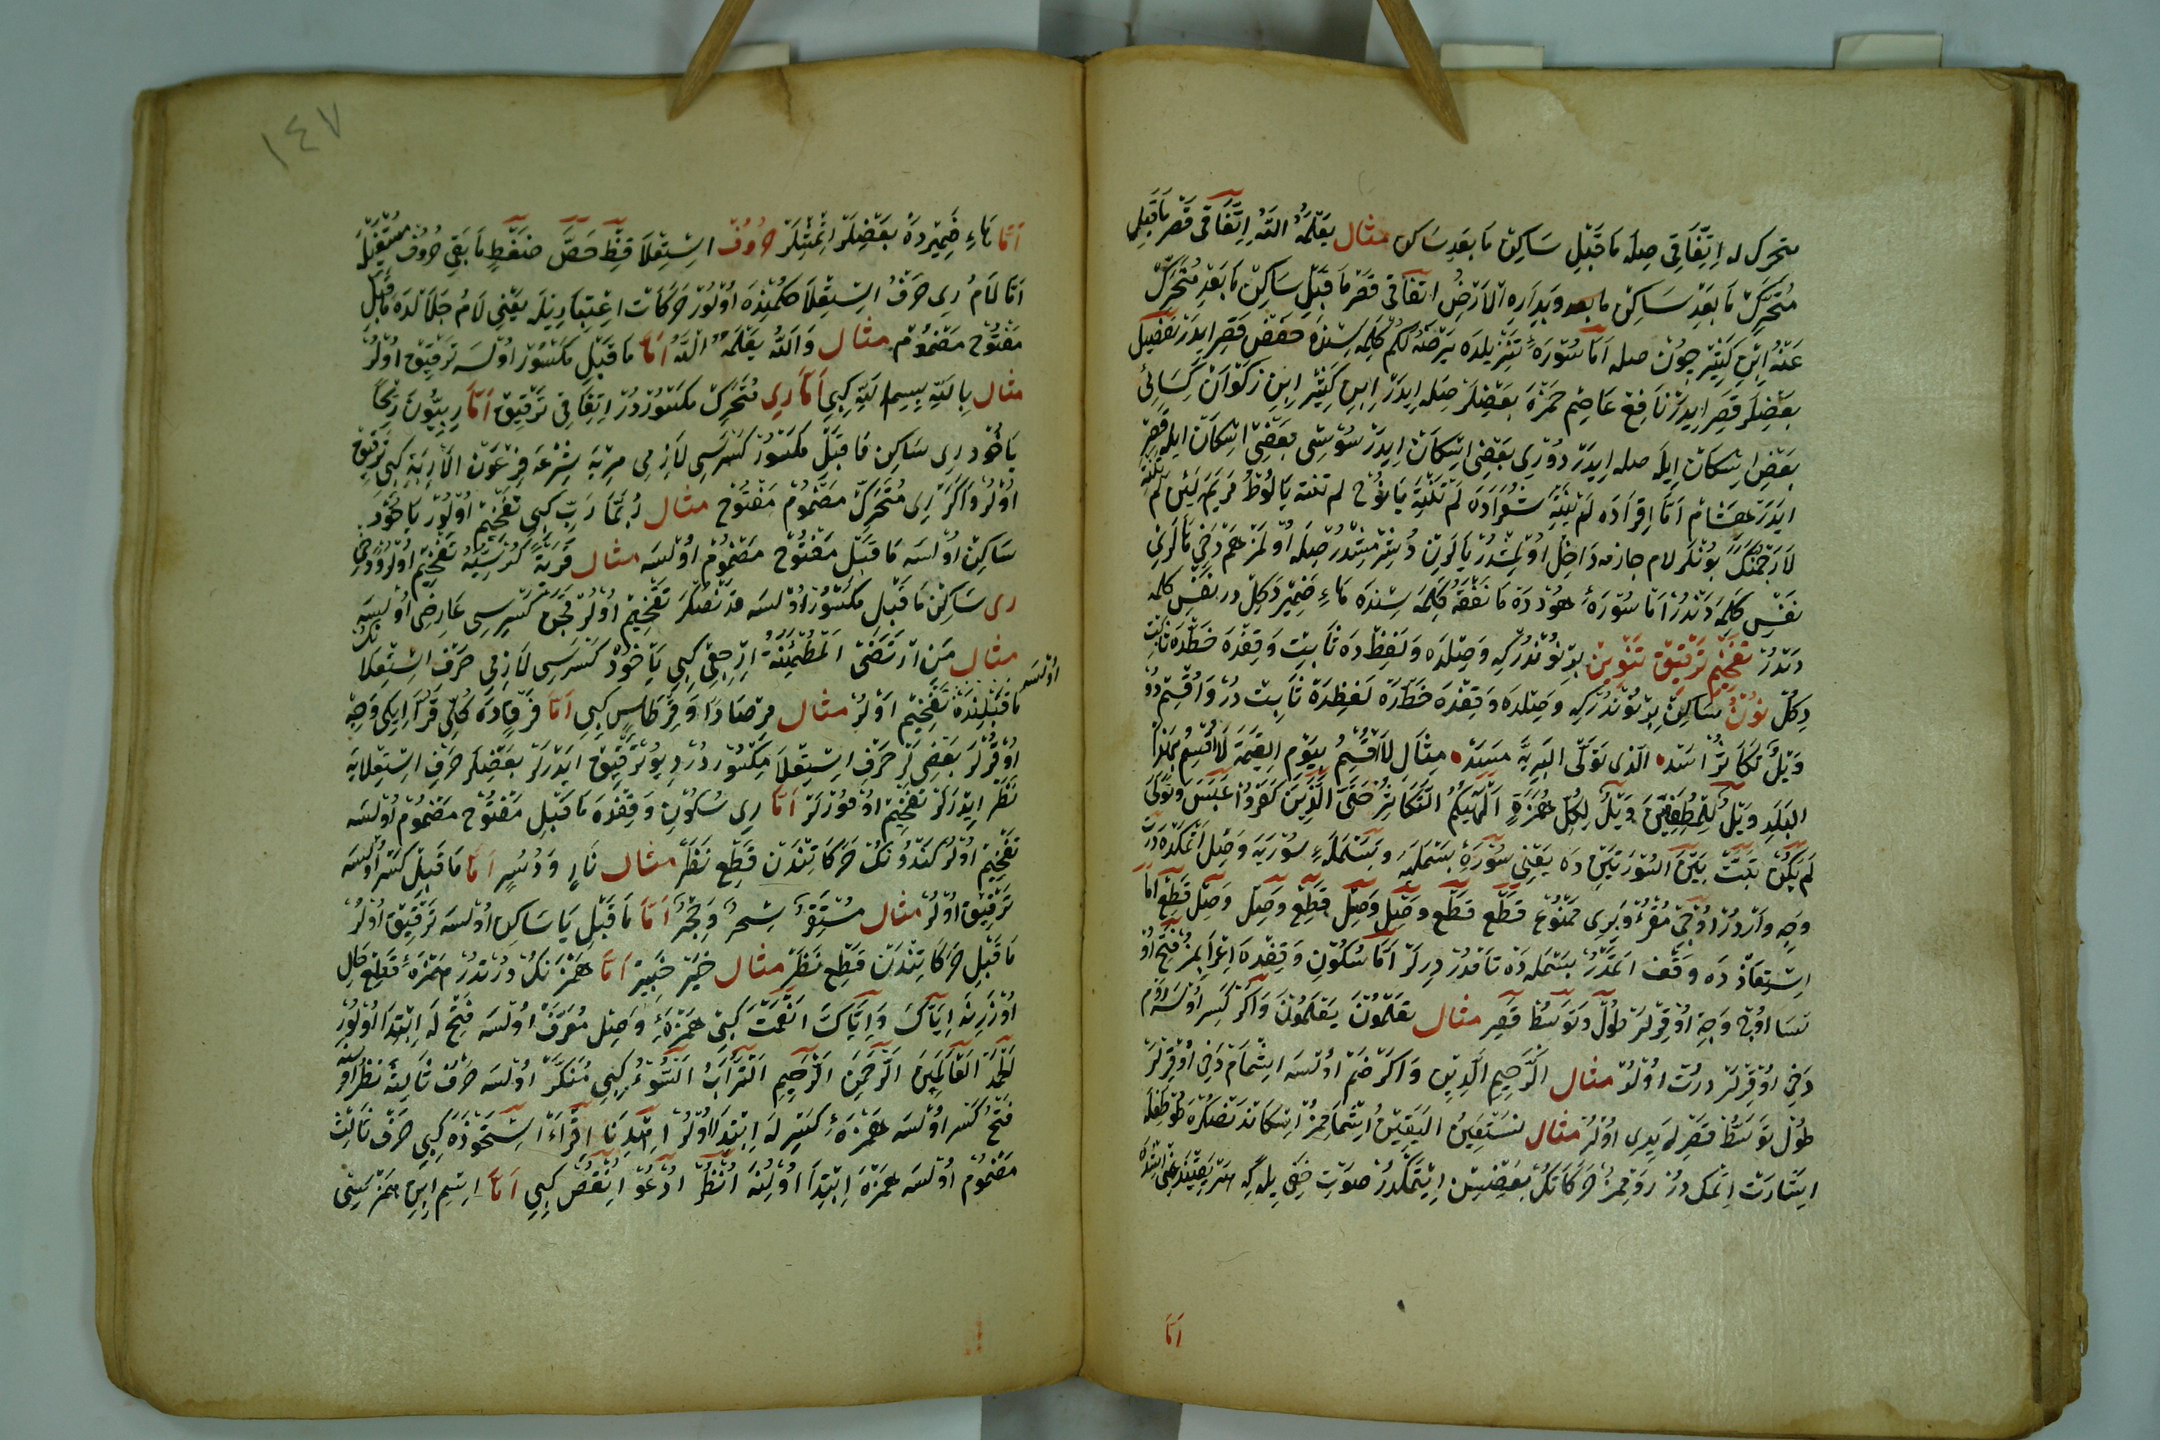 متحرك له اتفاقى صله ما قبل ساكن ما بعد ساكن مثال يعلمه الله اتفاقى قصر ما قبل
متحرك ما بعد ساكن وبداره الارض اتفاقى قصر ما قبل ساكن ما بعد متحرك
عنه ابن كثير صله اما سورهٔ تنزيلده يرضه لكم كلمه سنده حفص قصر ايدر
بعضلر قصر ايدر نافع عاصم حمزه بعضلر صله ايدر ابن كثير ابن ذكوان كسائى
بعض اسكان ايله صله ايدر دورى بعضى اسكان ايدر سوسى بعضى اسكان ايله قصر
ايدر هشام اما اقراده لم ينته شعراده لم تنته يا نوح لم تنته يا لوط مريم لئن لم تنته
لارجمنك بونلر لام جازمه داخل اولمشدر يالرين دخى
نفس كلمه دندر اما سورهٔ هودده ما نفقه كلمه سنده هاء ضمير دكلدر نفس كلمه
دندر تفخيم ترقيق تنوين بر نوندركه وصلده ولفظده ثابت وقفده خطده ثابت
دكل نون ساكن بر نوندركه وصلده وقفده خطده لفظده ثابت در واقسم
ويل لكاثر اسد الذى تولى البرية مسد مثال لا اقسم بيوم القيمة لا اقسم بهذا
البلد ويل للمطففين ويل لكل همزة الهيكم التكاثر حتى الذين كفروا عبس وتولى
لم يكن تبت بين السورتين ده يعنى سورهٔ بسمله وبسمله سوريه وصل اتمكده درت
وجه واردر اوچى مقرؤ وبرى ممنوع قطع قطع وصل وصل قطع وصل وصل قطع اما
استعاذه ده وقف بسمله ده درلر اما سكون وقفده اعرابمز فتح
نسا اوچ وجه اوقرلر طول وتوسط قصر مثال تعلمون يعلمون واكر كسر اولسه روم
دخى اوقرلر درت اولور مثال الرحيم الدين واكر ضم اولسه اشمام دخى اوقرلر
طول توسط قصرله يدى اولر مثال نستعين اليقين اشمامز اسكاندنصكره
اشارت اتمك در رومز حركاتك بعضيسن ايتمكدر صوت خفى يله كه
اما
١٤٧
اما هاء ضميرده بعضلر اتمشلر حروف استعلا قظ خص ضغط ما بقى حروف مستفله
اما لام رى حرف استعلا حكمنده اولور حركات اعتباريله يعنى لام جلالده ما قبل
مفتوح مضموم مثال والله يعلمه الله اما ما قبل مكسور اولسه ترقيق اولر
مثال بالله بسم الله كبى اما رى متحرك مكسوردر اتفاقى ترقيق اما ربيون رجحا
ياخود رى ساكن ما قبل مكسور كسرسى لازمى مرية شرعة فرعون الاربة كبى ترقيق
اولر واكر رى متحرك مضموم مفتوح مثال ربما رب كبى تفخيم اولور ياخود
ساكن اولسه ما قبل مفتوح مضموم اولسه مثال قرية كرسيه تفخيم اولر ودخى
رى ساكن ما قبل مكسور اولسه تفخيم اولر كسرسى عارضى اولسه
مثال من ارتضى المطمئنة ارجعى كبى ياخود كسرسى لازمى حرف استعلا
ما قبلنده تفخيم اولر مثال مرصادا وقرطاس كبى اما فرقاده كلى قرا ايكى وجه
اولسه
اوقرلر بعضيلر حرف استعلا مكسوردر ديو ترقيق ايدرلر بعضلر حرف استعلايه
نظر ايدرلر تفخيم اوقورلر اما رى سكون وقفده ما قبل مفتوح مضموم اولسه
تفخيم اولر كندونك حركاتندن قطع نظر مثال نار ودسر اما ما قبل كسر اولسه
ترقيق اولر مثال مستقر سحر وحجر اما ما قبل يا ساكن اولسه ترقيق اولر
ما قبل حركاتندن قطع نظر مثال خير خبير اما همزنك درتدر همزهٔ قطع حال
اوزرنه اياك واياك انعمت كبى همزهٔ وصل معرف اولسه فتح له ابتدا اولور
الحمد العالمين الرحمن الرحيم التراب السوء كبى منكر اولسه حرف ثالثه نظر اولنه
فتح كسر اولسه همزهٔ كسر له ابتدا اولر اهدنا اقراء استحوذه كبى حرف ثالث
مضموم اولسه همزه ابتدا اولنه انظر ادعو انقص كبى اما اسم ابن همزسنى